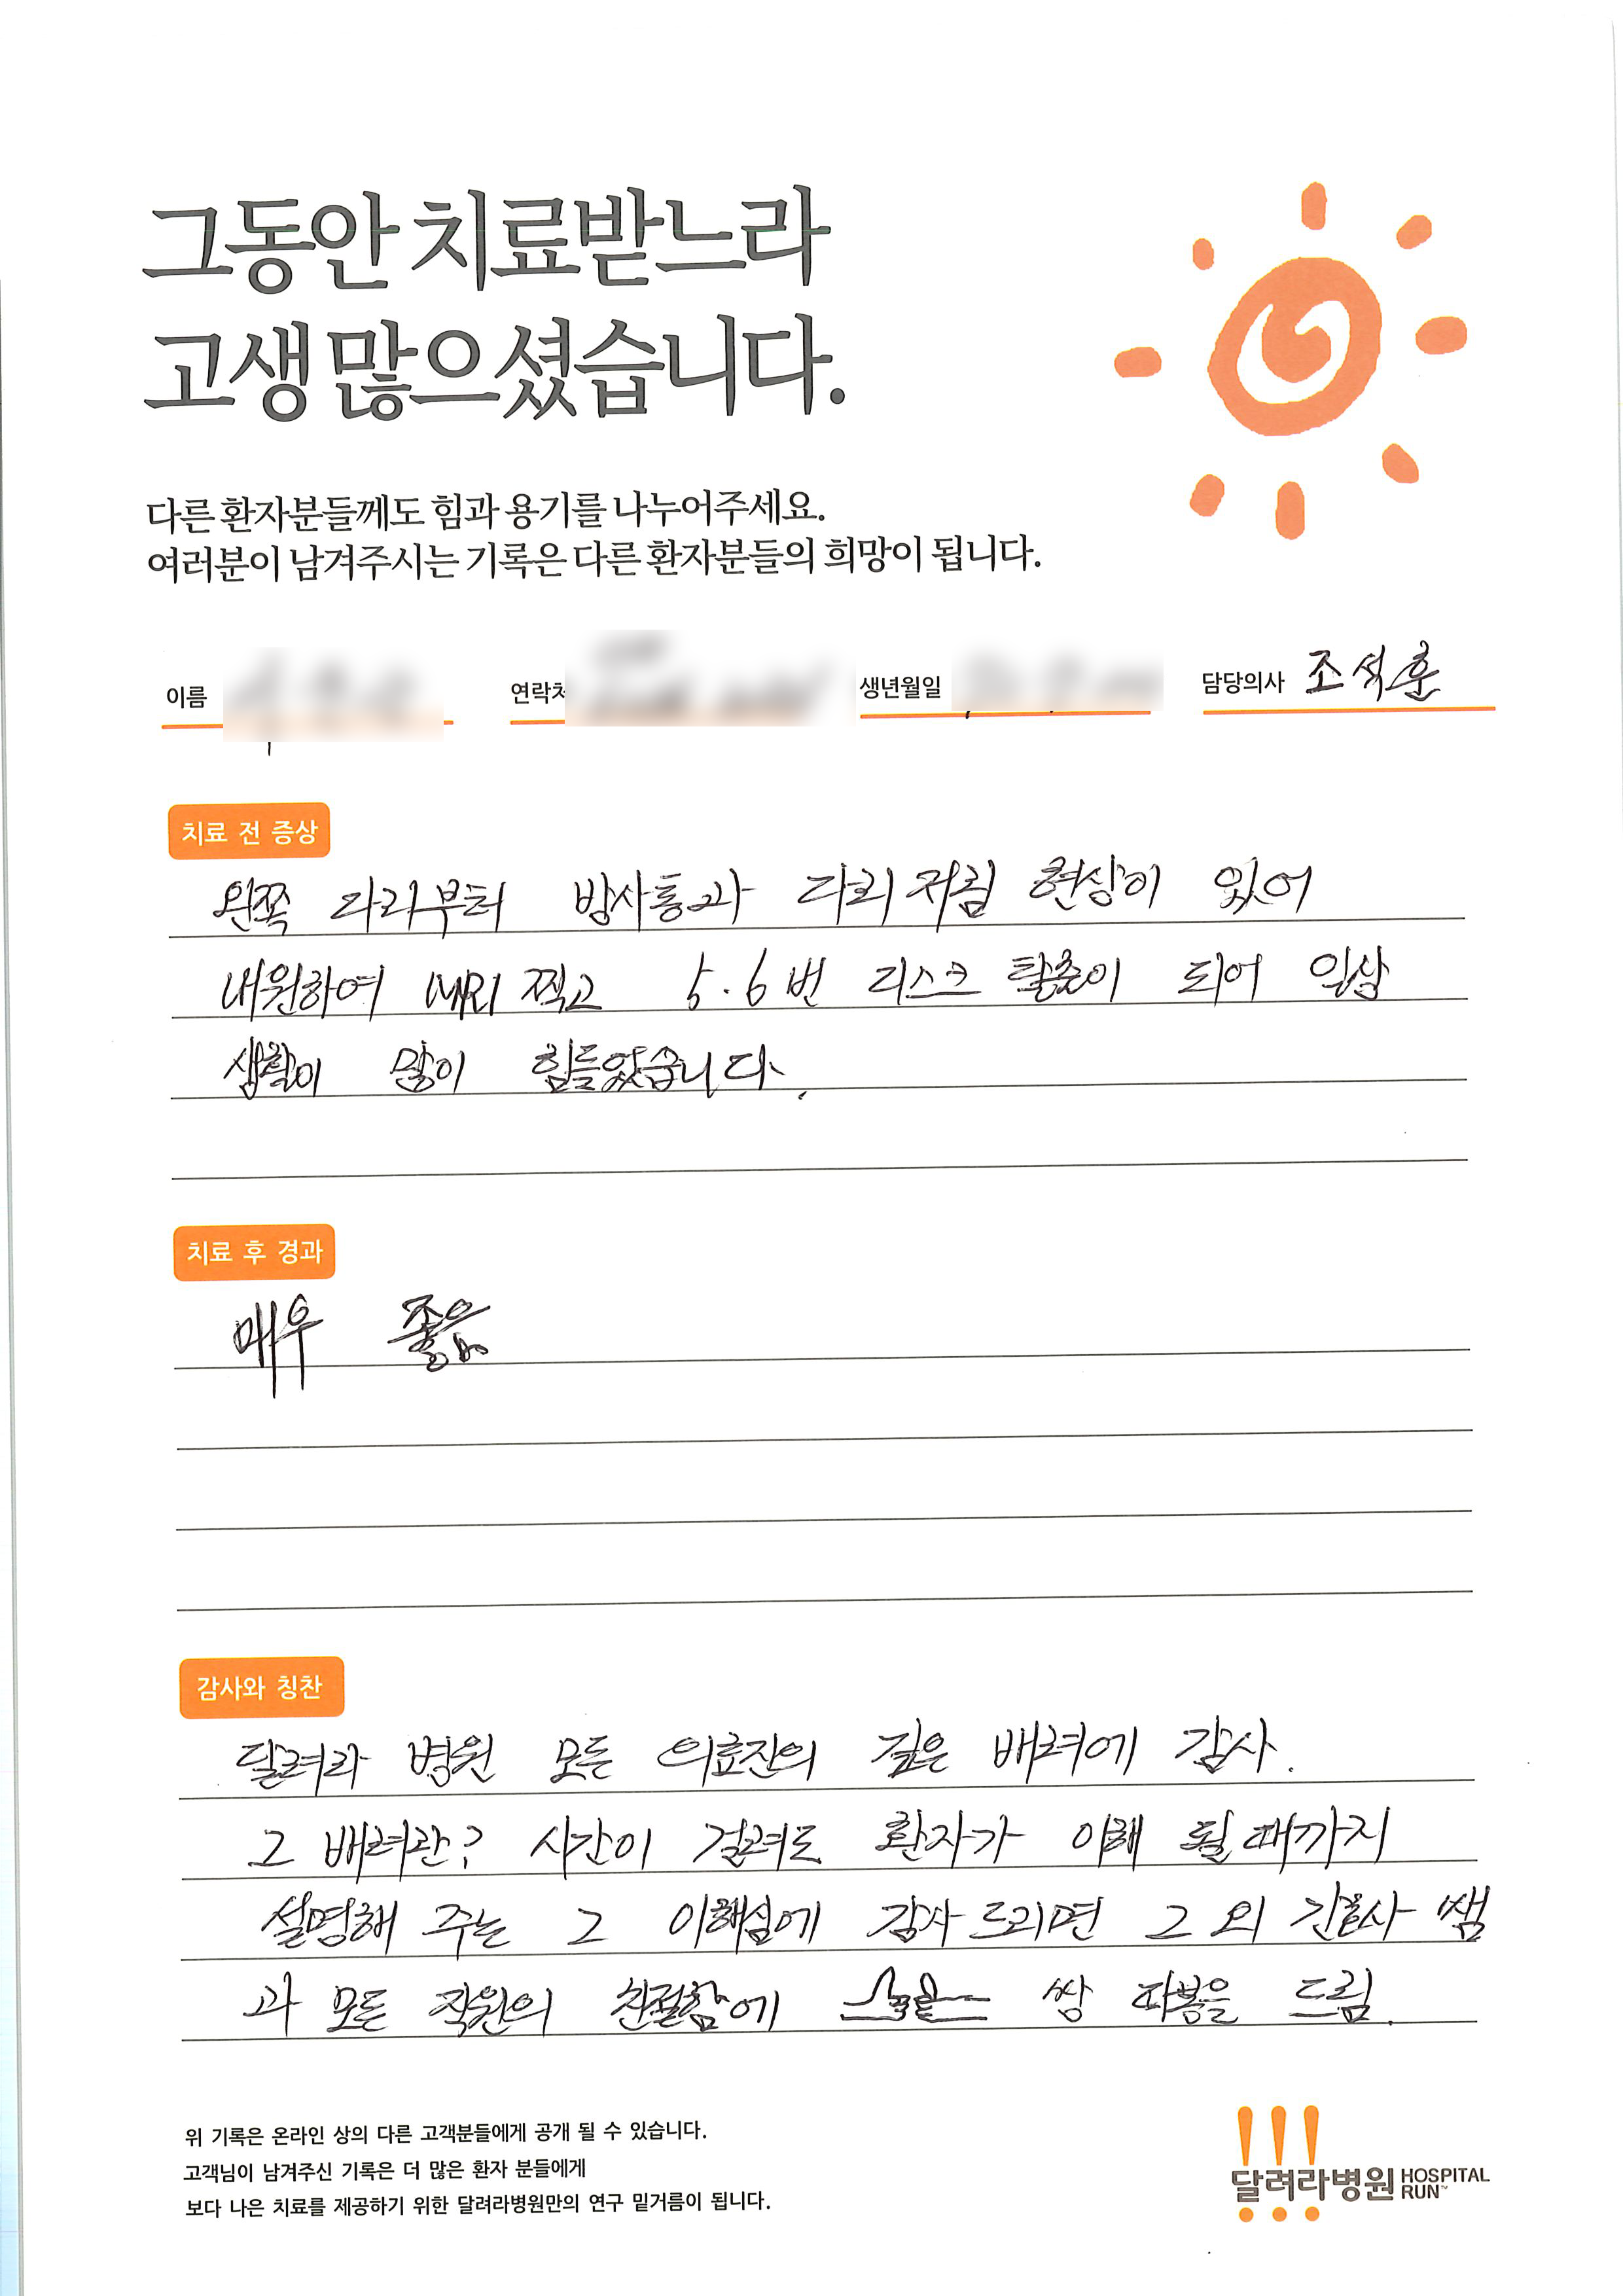 그동안 치료받느라
고생 많으셨습니다.
다른 환자분들께도 힘과 용기를 나누어주세요.
여러분이 남겨주시는 기록은 다른 환자분들의 희망이 됩니다.
이름 연락처 생년월일 담당의사 조석훈
치료 전 증상
왼쪽 다리부터 방사통과 다리 저림 현상이 있어
내원하여 MRI 찍고 5.6번 디스크 탈출이 되어 일상
생활이 많이 힘들었습니다.
치료 후 경과
매우 좋음
감사와 칭찬
달려라 병원 모든 의료진의 깊은 배려에 감사.
그 배려란? 시간이 걸려도 환자가 이해 될때까지
설명해 주는 그 이해심에 감사드리면 그 외 간호사 쌤
과 모든 직원의 친절함에 쌍 따봉을 드림.
위 기록은 온라인 상의 다른 고객분들에게 공개 될 수 있습니다.
고객님이 남겨주신 기록은 더 많은 환자 분들에게
보다 나은 치료를 제공하기 위한 달려라병원만의 연구 밑거름이 됩니다.
!!!
달려라병원 HOSPITAL RUN™